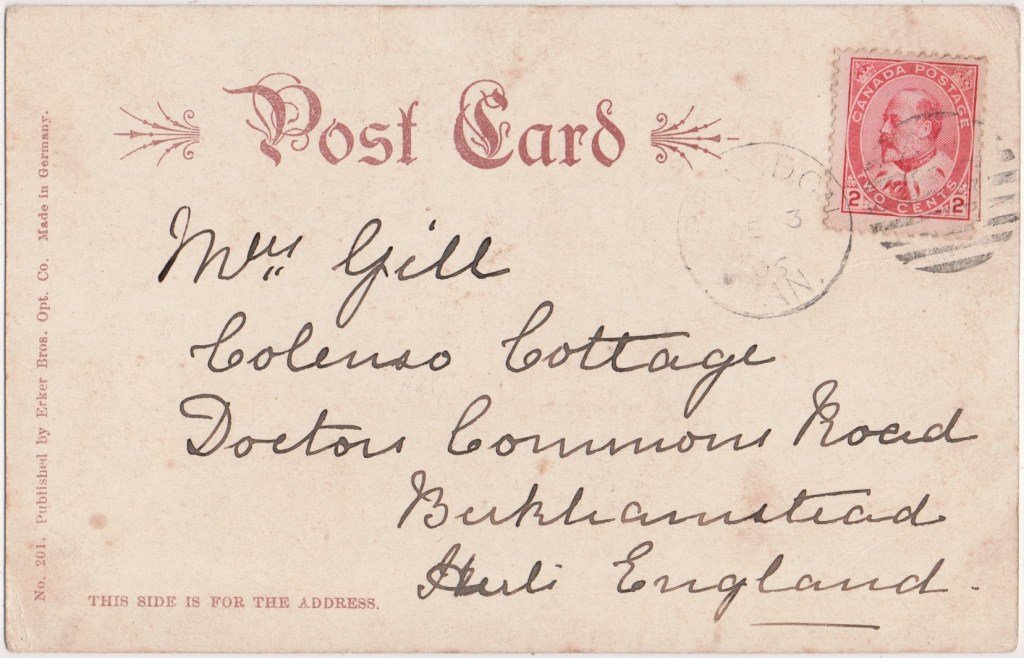 Post Card
CANADA POSTAGE
TWO CENTS
2 2
3
Mrs Gill
Colenso Cottage
Doctors Commons Road
Berkhamstead
Herts England.
THIS SIDE IS FOR THE ADDRESS.
No. 201. Published by Erker Bros. Opt. Co. Made in Germany.